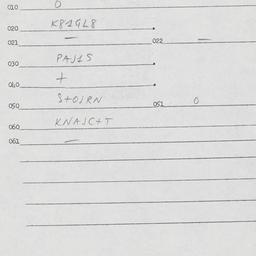 010 0
020 K81GL8
021 — 022 —
030 PAJ1S
040 +
050 S+OJRN 051 0
060 KNAJC+T
061 —